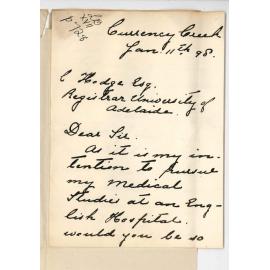 Currency Creek
Jan. 11th 98.
C Hodge Esq.
Registrar University of
Adelaide.
Dear Sir.
As it is my in-
tention to pursue
my Medical
Studies at an Eng-
lish Hospital.
would you be so